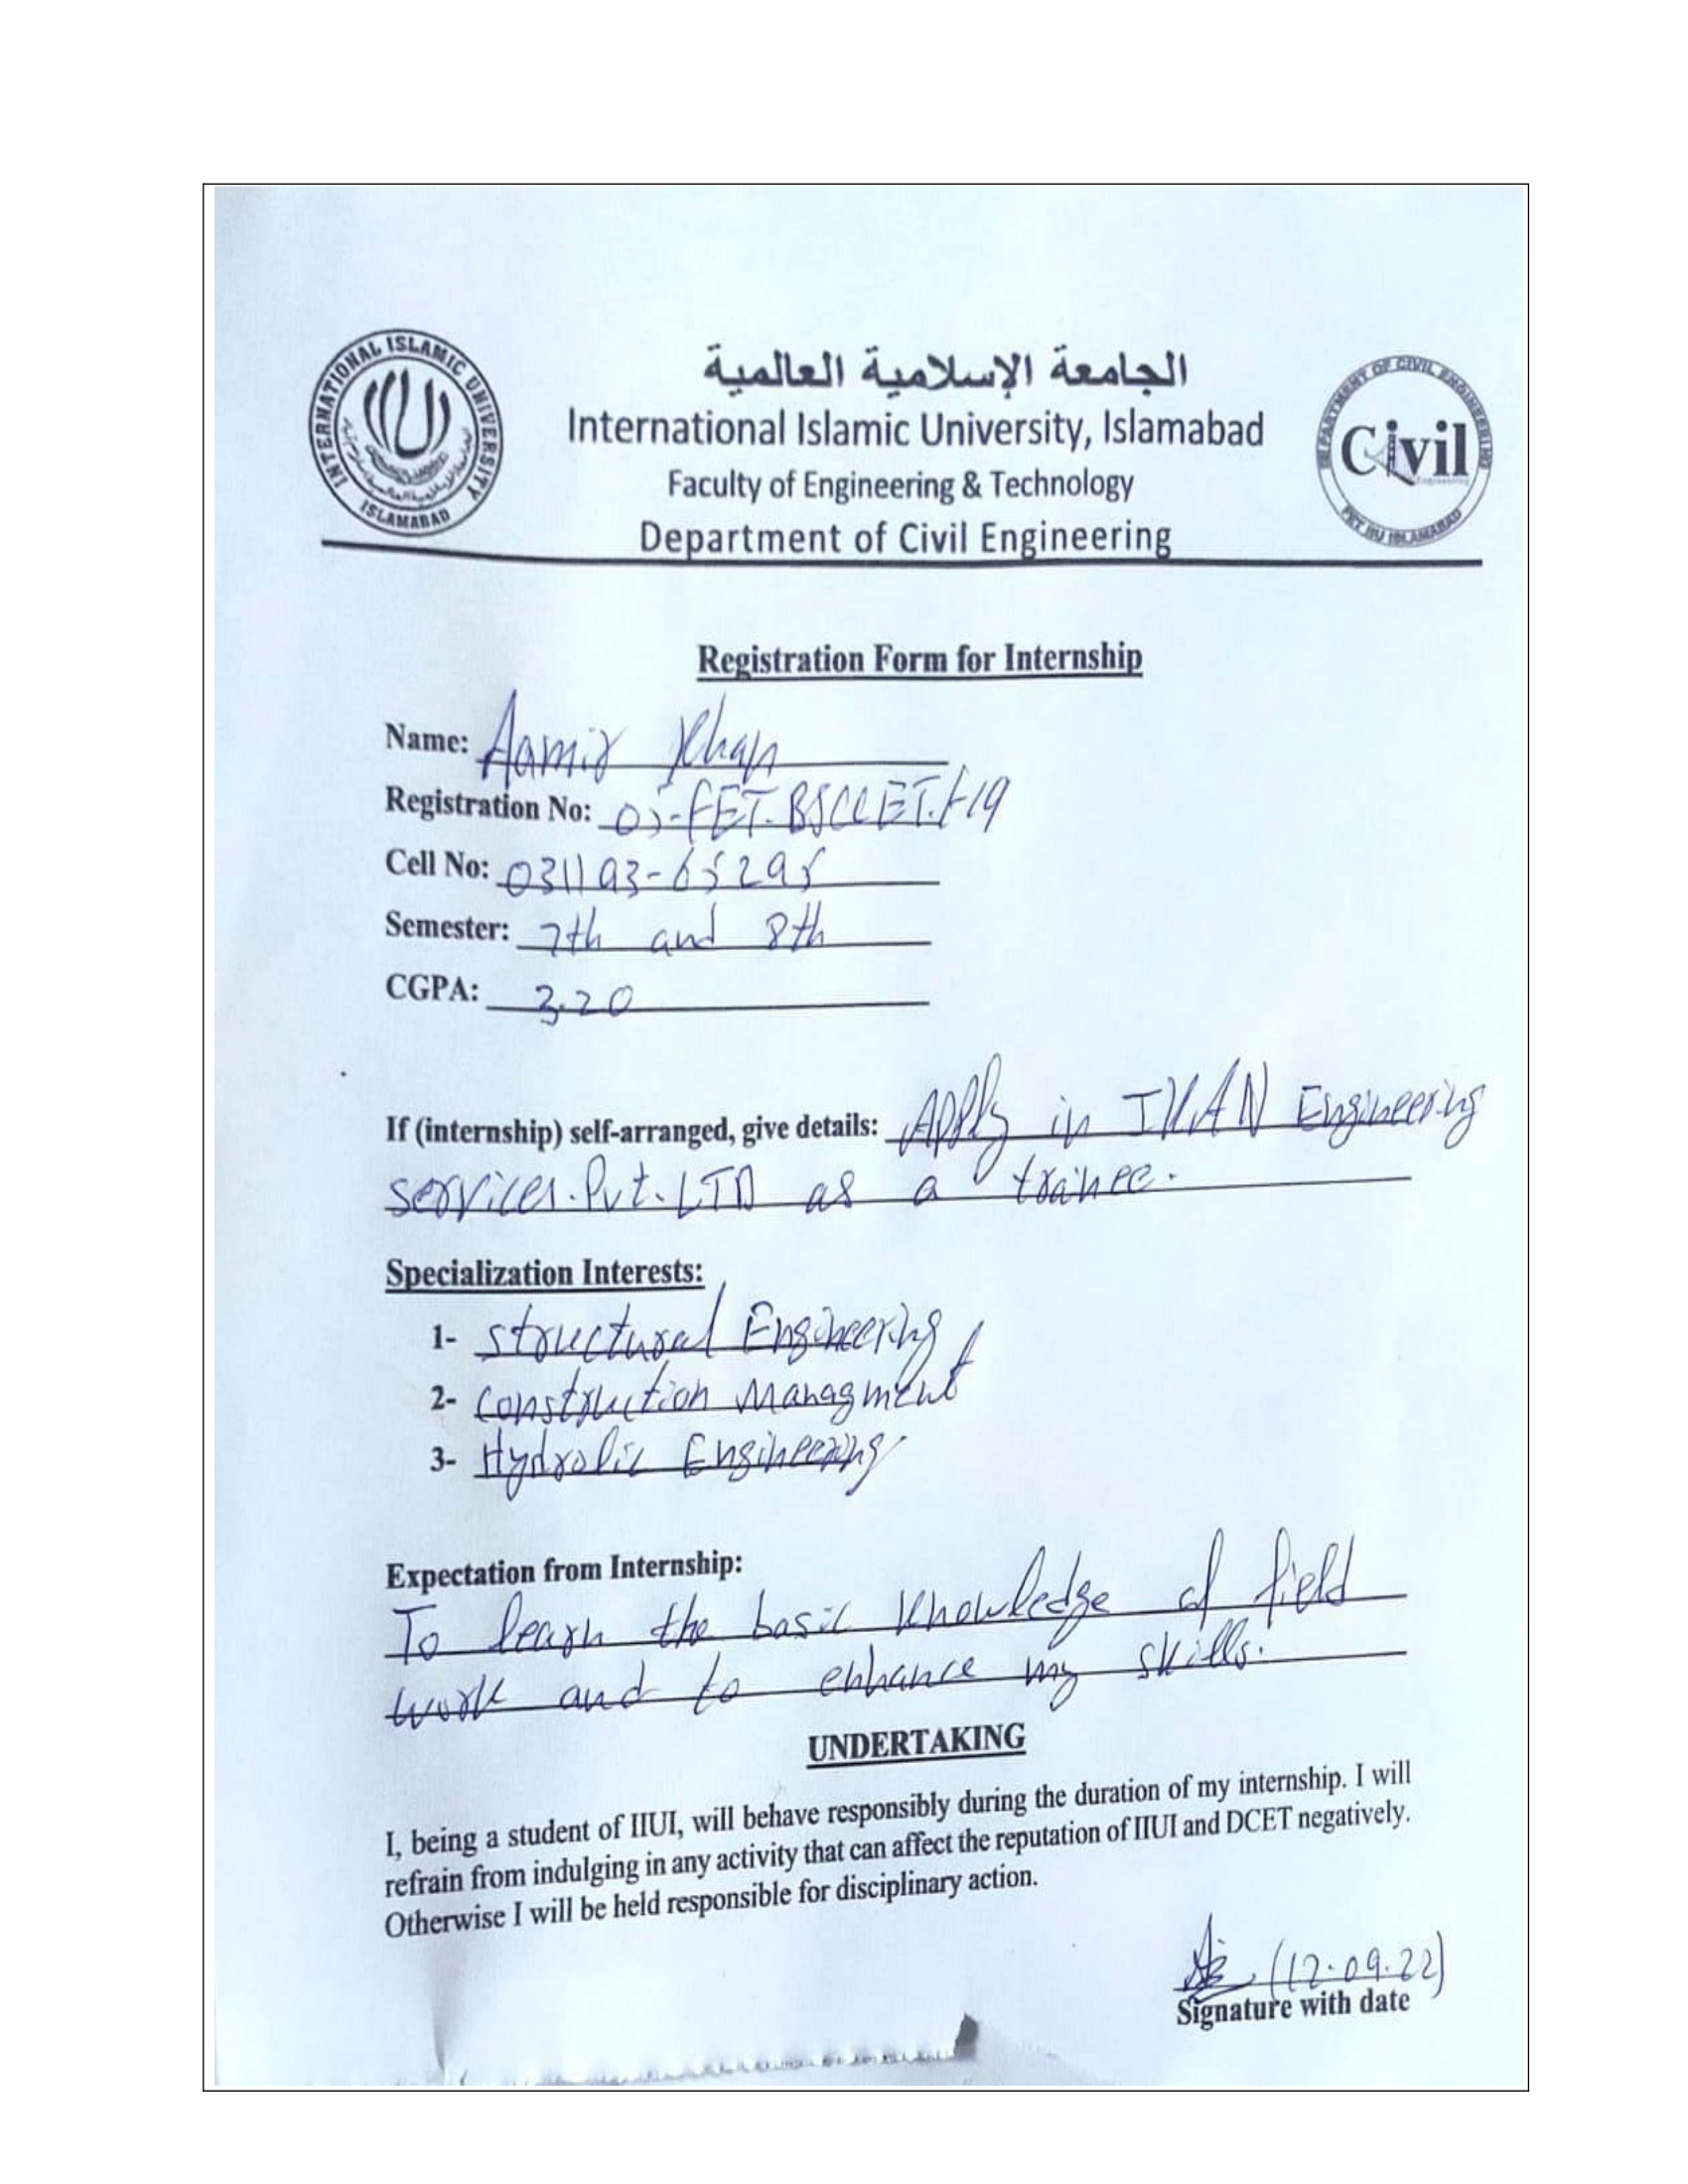 الجامعة الإسلامية العالمية
International Islamic University, Islamabad
Faculty of Engineering & Technology
Department of Civil Engineering
INTERNATIONAL ISLAMIC UNIVERSITY
ISLAMABAD
DEPARTMENT OF CIVIL ENGINEERING
Civil
Engineering
FET IIU ISLAMABAD
Registration Form for Internship
Name: Aamir Khan
Registration No: 05-FET.BSCCET.F19
Cell No: 031193-65295
Semester: 7th and 8th
CGPA: 3.20
If (internship) self-arranged, give details: Apply in IKAN Engineering
services.Pvt.LTD as a trainee.
Specialization Interests:
1- Structural Engineering
2- Construction Managment
3- Hydrolic Engineering
Expectation from Internship:
To learn the basic knowledge of field
work and to enhance my skills.
UNDERTAKING
I, being a student of IIUI, will behave responsibly during the duration of my internship. I will
refrain from indulging in any activity that can affect the reputation of IIUI and DCET negatively.
Otherwise I will be held responsible for disciplinary action.
(12.09.22)
Signature with date